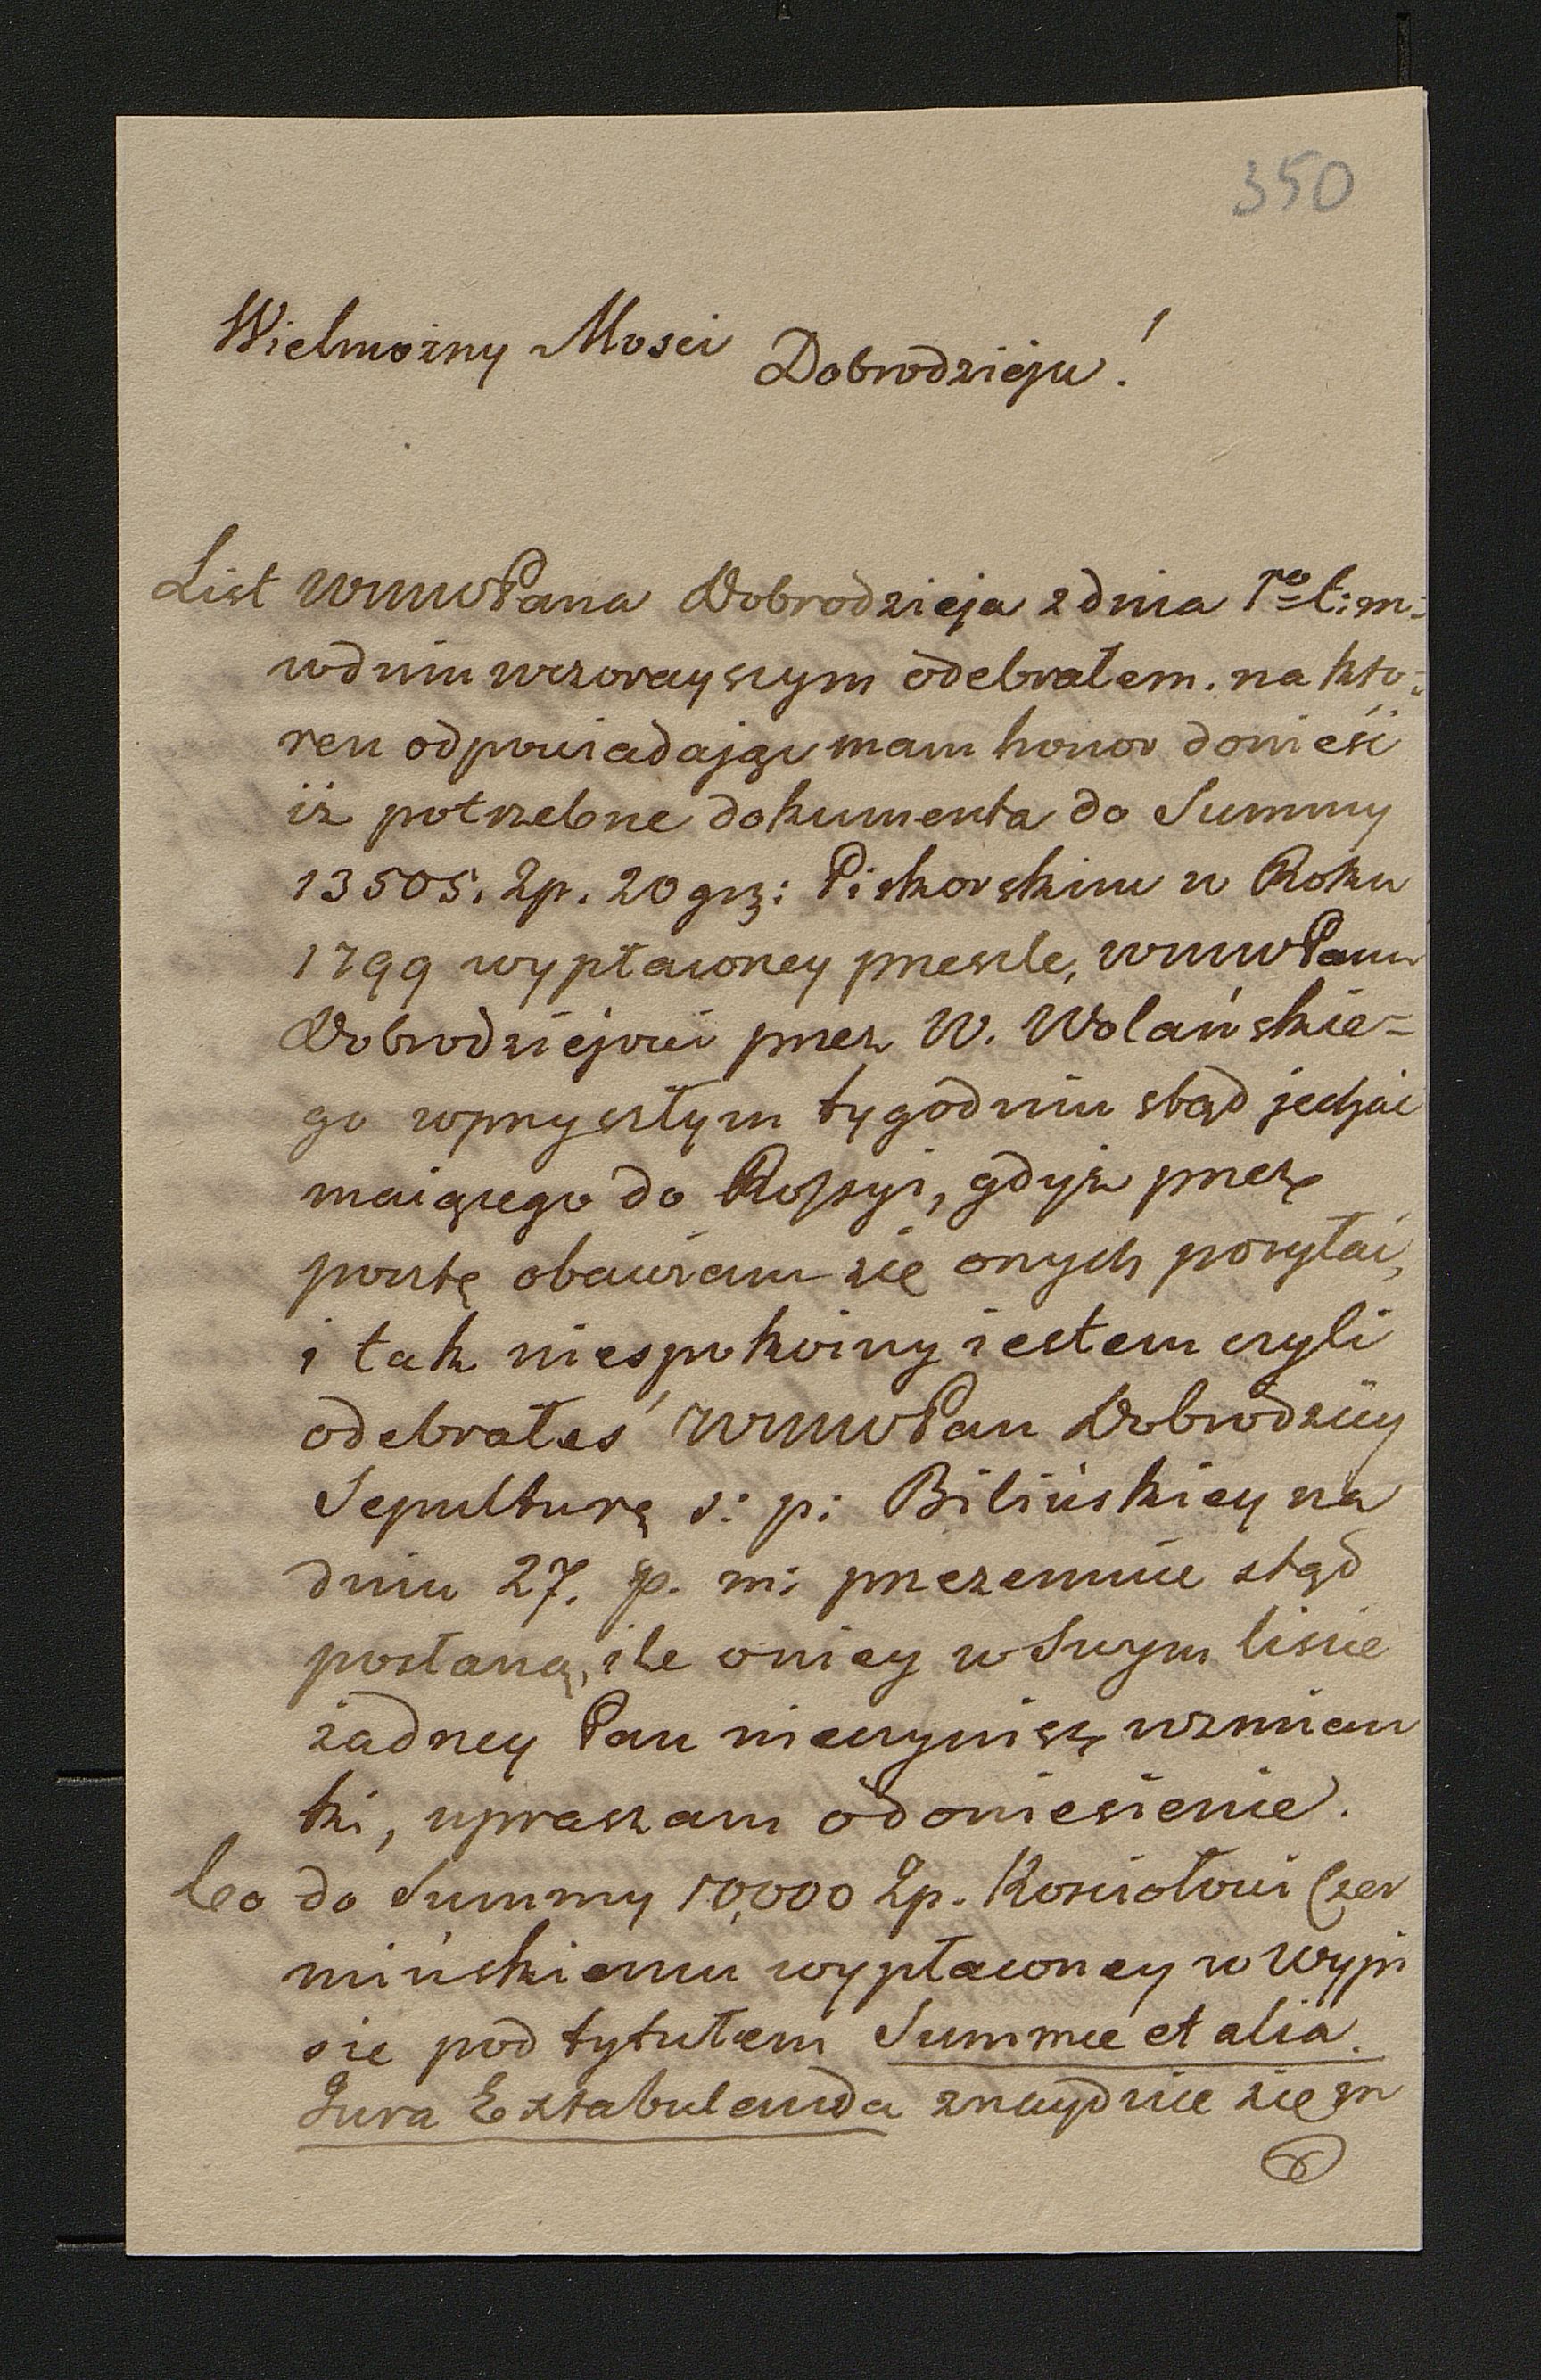 350
Wielmożny Mosci Dobrodzieju!
List WMWPana Dobrodzieja z dnia 1go t: m:
w dniu wczorayszym odebrałem. na któ=
ren odpowiadając mam honor donieść
iż potrzebne dokumenta do Summy
13505. Zp. 20 grz: Piskorskim w Roku
1799 wypłaconey prześle, WMWPanu
Dobrodziejowi przez W. Wolańskie=
go w przyszłym tygodniu stąd jechać
maiącego do Rossyi, gdyż przez
pocztę obawiam się onych posyłać,
i tak niespokoiny iestem czyli
odebrałeś WMWPan Dobrodziey
Sepulturę s: p: Bilińskiey na
dniu 27. p. m: przezemnie stąd
posłaną, ile o niey w Swym liście
żadney Pan nieczynisz wzmian
ki, upraszam o doniesienie.
Co do Summy 10,000 Zp. Kościołowi Czer
mińskiemu wypłaconey w Wypi
sie pod tytułem Summe et alia.
Jura Extabulanda znayduie się m